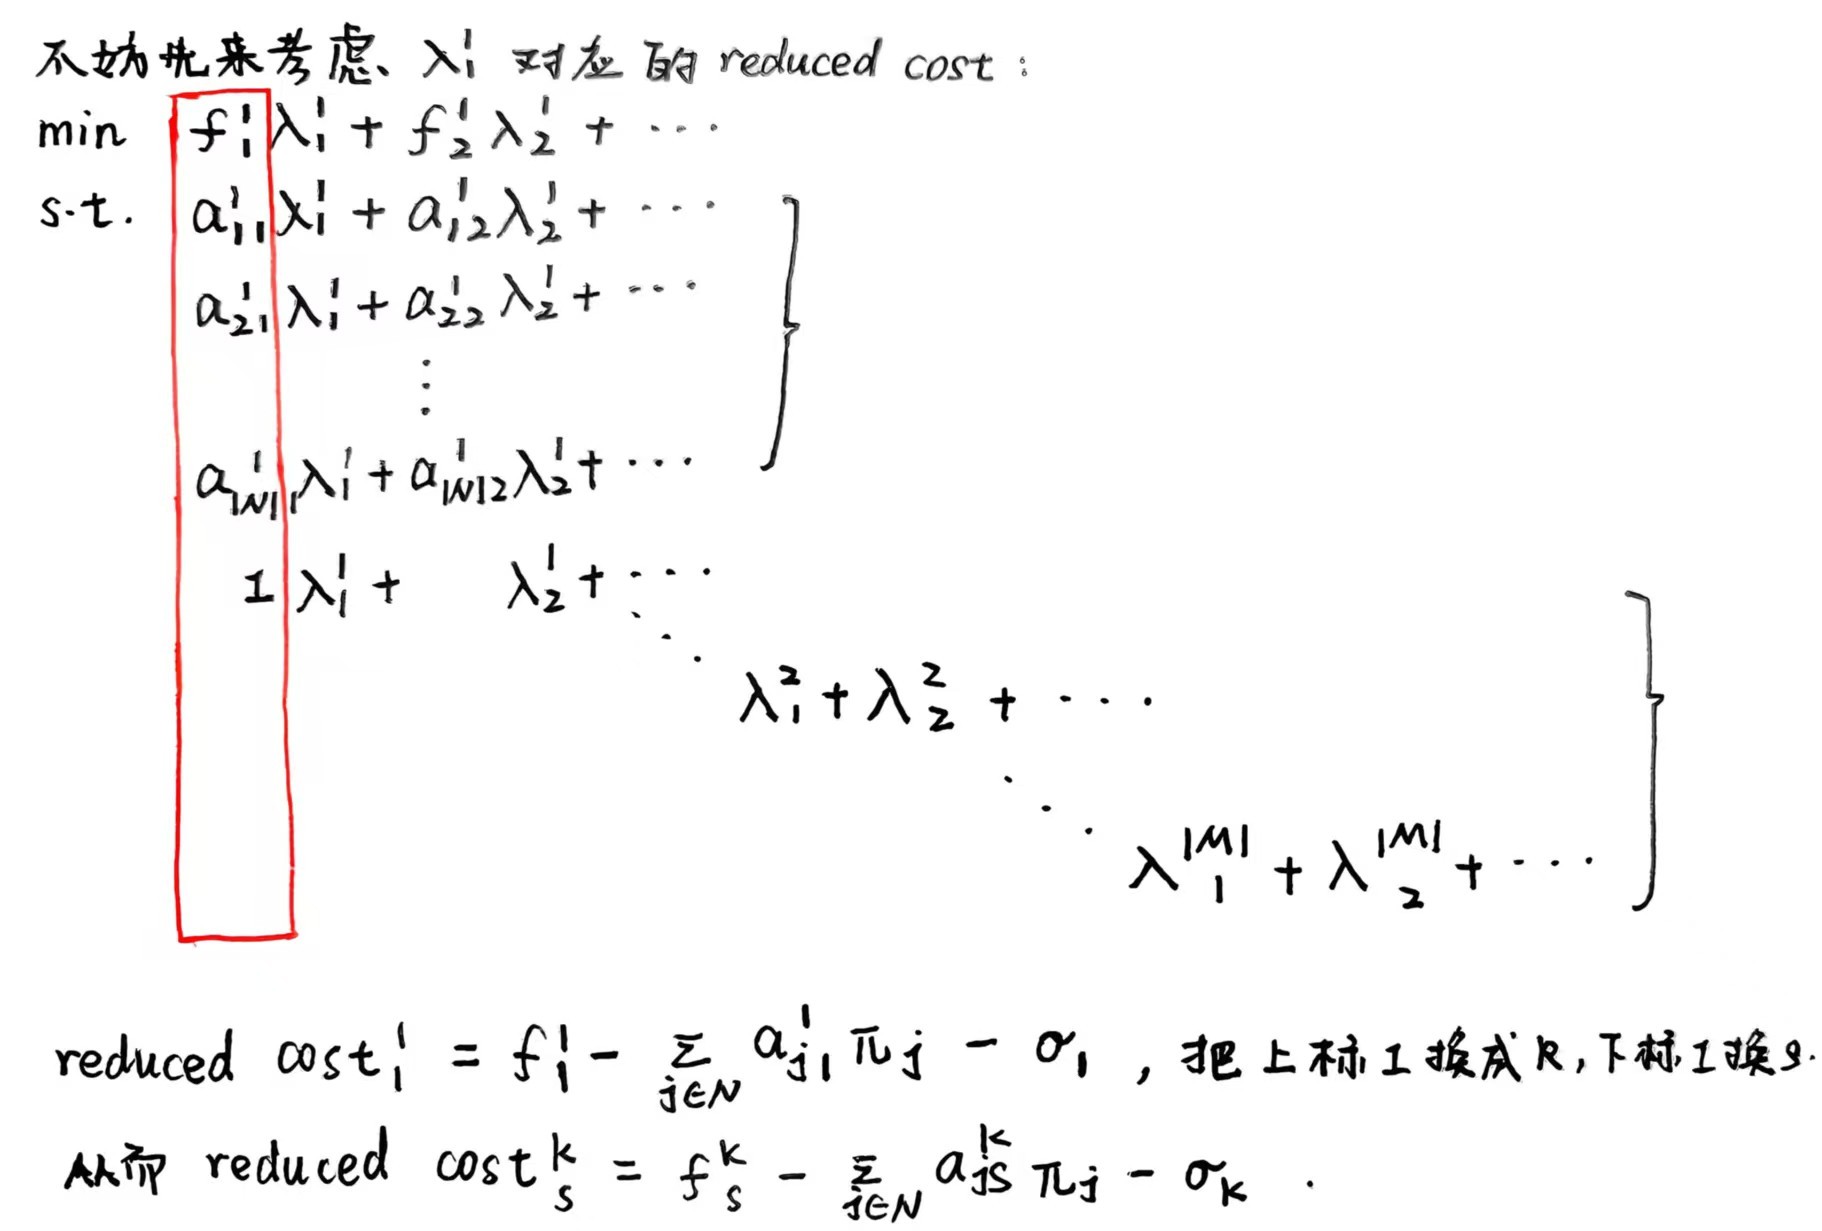 不妨先来考虑 λ₁¹ 对应的 reduced cost:
min f₁¹λ₁¹ + f₂¹λ₂¹ + ···
s.t. a₁₁¹λ₁¹ + a₁₂¹λ₂¹ + ···
a₂₁¹λ₁¹ + a₂₂¹λ₂¹ + ···
⋮
a_{|N|1}¹λ₁¹ + a_{|N|2}¹λ₂¹ + ···
1 λ₁¹ + λ₂¹ + ···
λ₁² + λ₂² + ···
λ₁^{|M|} + λ₂^{|M|} + ···
reduced cost₁¹ = f₁¹ - Σ_{j∈N} a_{j1}¹ π_j - σ₁ , 把上标1换成k,下标1换s.
从而 reduced cost_s^k = f_s^k - Σ_{j∈N} a_{js}^k π_j - σ_k .